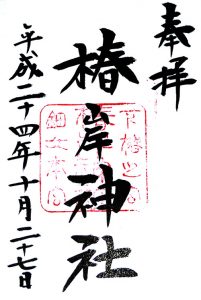 奉拝
椿岸神社
平成二十四年十月二十七日